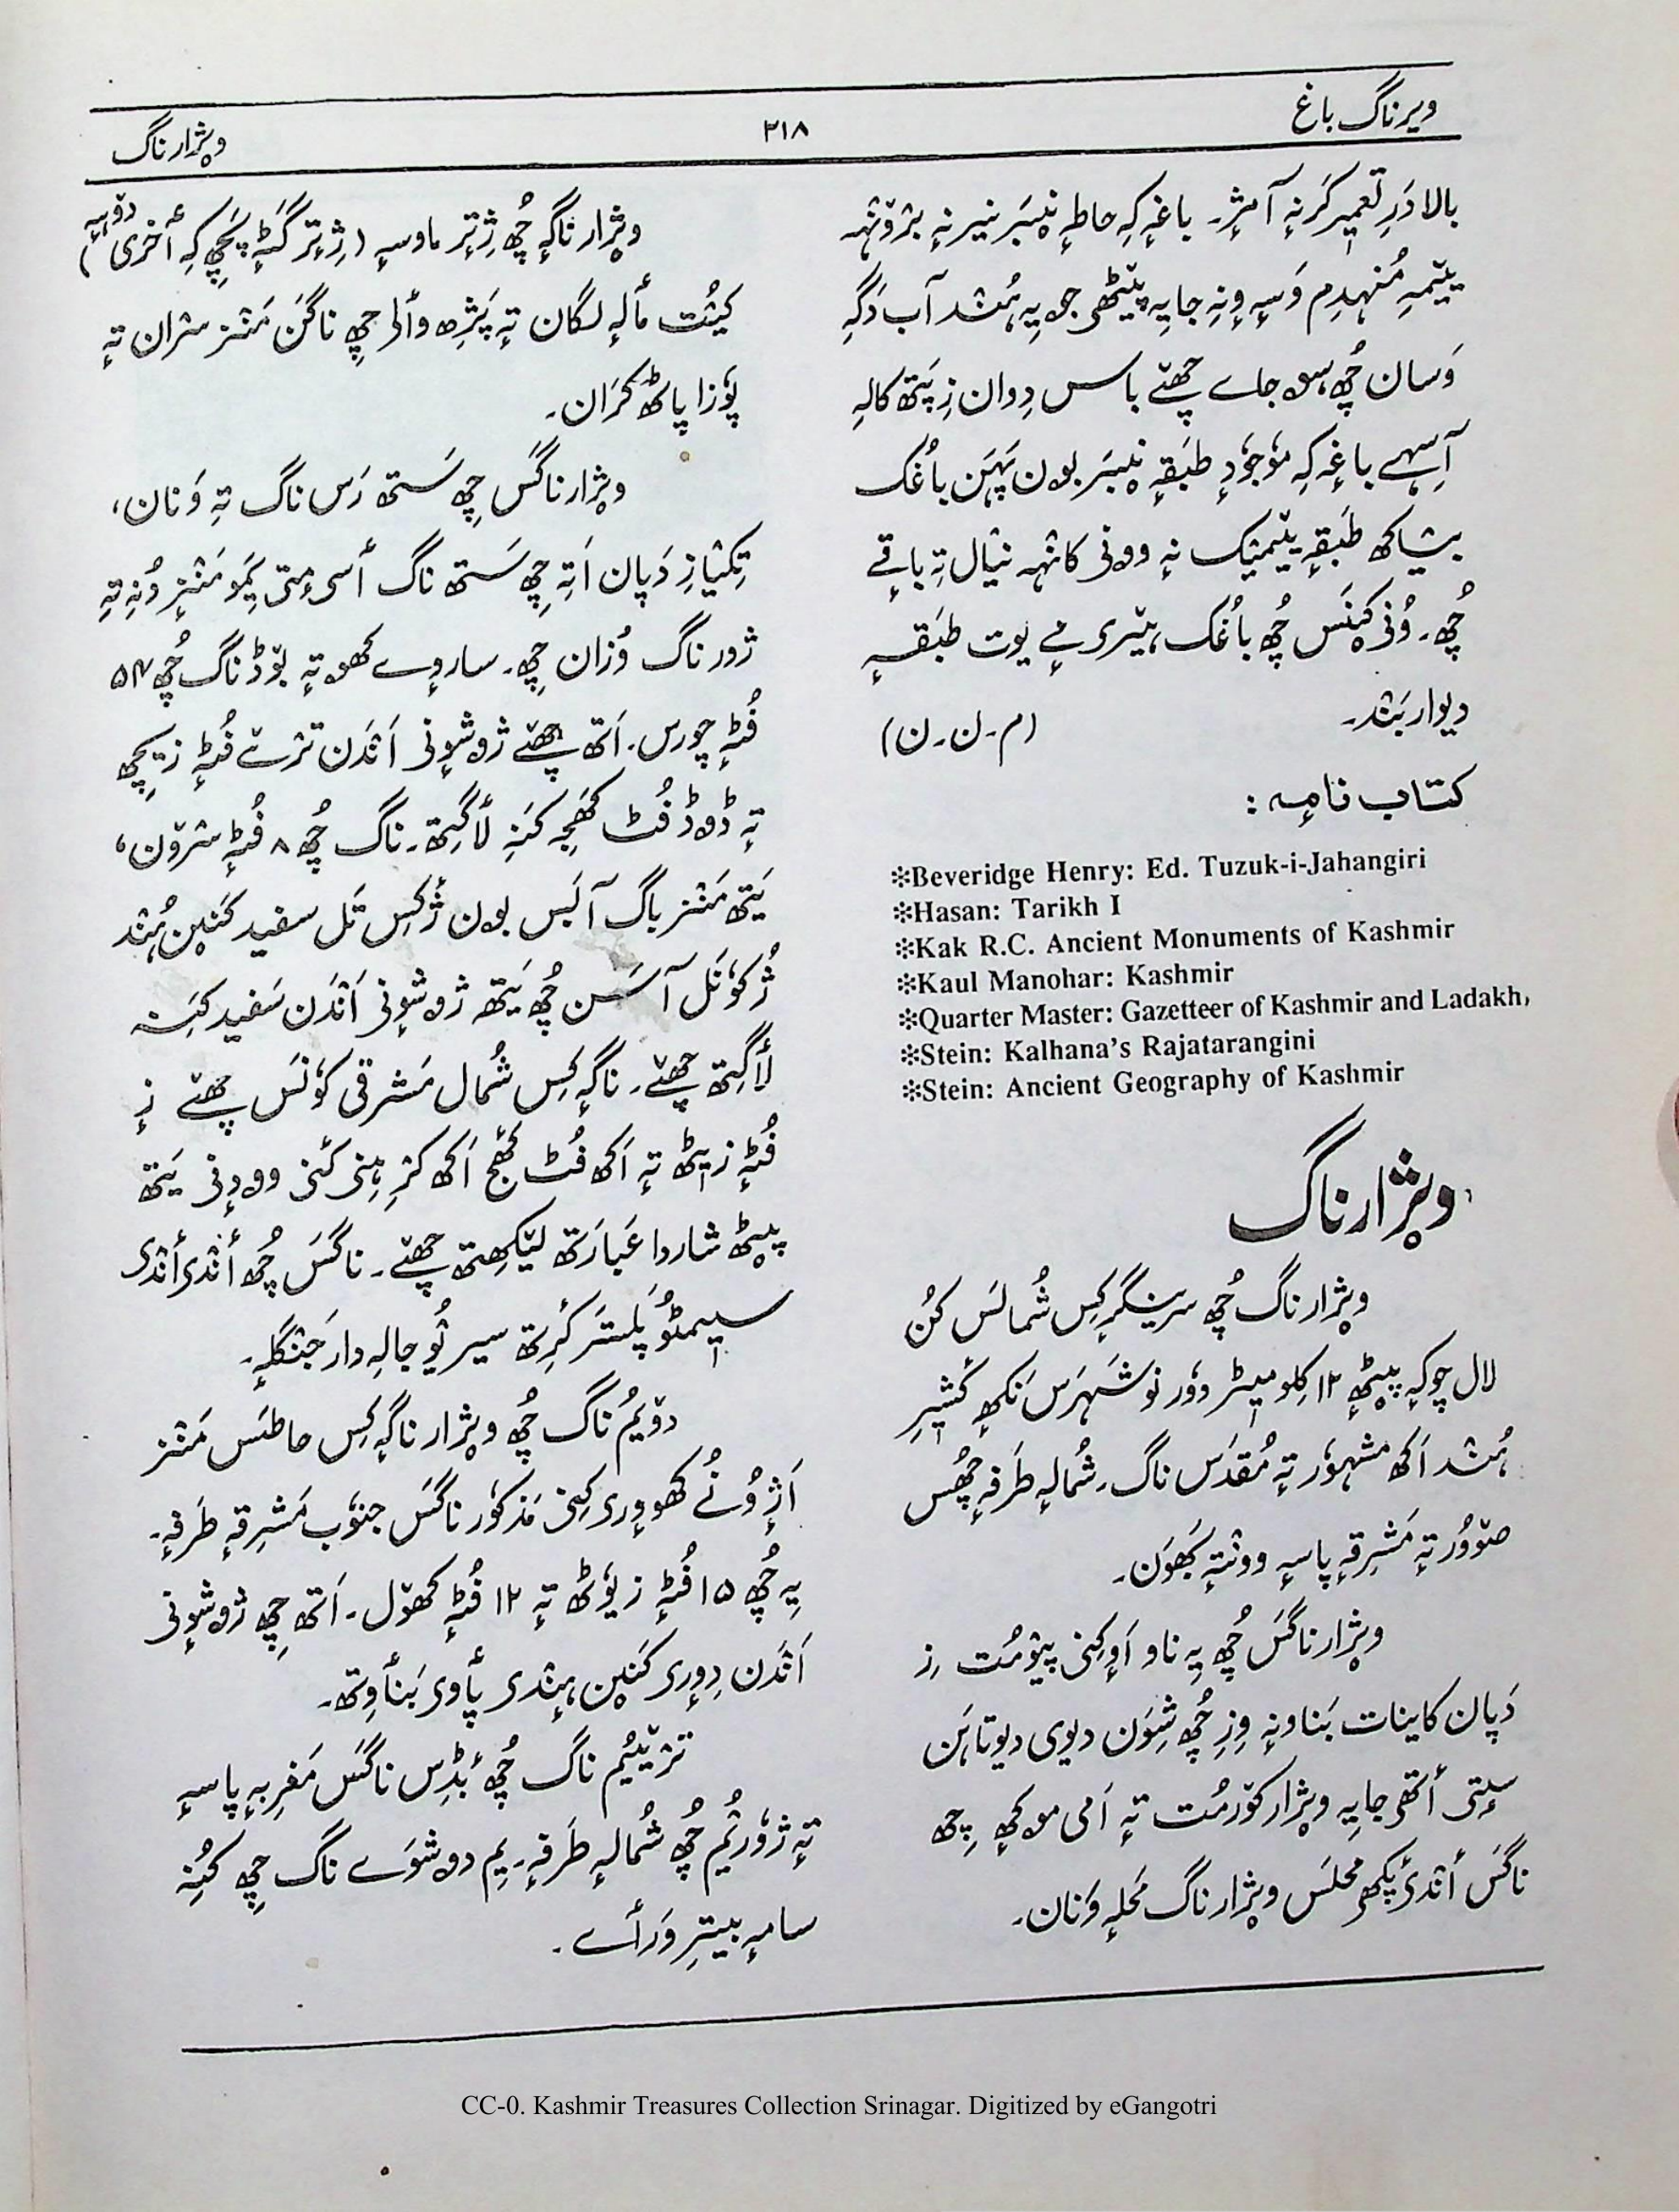 ویرناگ باغ
۳۱۸
وژارناگ
بالا دَرِ تعمیر کَرنہٕ آمژٕ۔ باغہٕ کہِ حاطہٕ نیٖبَر نیرنہٕ برٛونٛہہ
یتٚیمہِ مُنہدِم وَسہٕ وِنہِ جایہِ پیٚٹھۍ جویہِ ہُنٛد آب دَگہِ
وَسان چُھ، سۄ جاے چھےٚ باسس دِوان زِ پَتھ کالہِ
آسہِہے باغہٕ کہِ موٗجوٗدٕ طبقہٕ نیٖبَر بۄن پَہَن باغُک
بیٚاکھ طَبقہٕ ییٚمیُک نہٕ وونۍ کانٛہہ نیٚال تہِ باقےٚ
چُھ۔ وُنۍ کیٚنَس چُھ باغُک یتٚری مےٚ یوت طبَقہٕ
دیوار بَنٛد۔
(م۔ن۔ن)
کتاب نامہٕ :
✻Beveridge Henry: Ed. Tuzuk-i-Jahangiri
✻Hasan: Tarikh I
✻Kak R.C. Ancient Monuments of Kashmir
✻Kaul Manohar: Kashmir
✻Quarter Master: Gazetteer of Kashmir and Ladakh,
✻Stein: Kalhana's Rajatarangini
✻Stein: Ancient Geography of Kashmir
وێژارناگ
وێژارناگ چُھ سرینگرٕ کِس شُمالَس کُن
لال چوکہٕ پیٚٹھٕ ۱۲ کِلومیٖٹر دوٗر نوشَہرَس نَکھٕ کٔشیٖرِ
ہُنٛد اَکھ مشہوٗر تہٕ مُقدَس ناگ۔ شُمالہٕ طَرفہٕ چُھس
صوٚوُر تہٕ مَشرِقہٕ پاسہٕ وونٛتہٕ بَھوَن۔
وێژارناگَس چُھ یہِ ناو اَوٕکِنۍ پیوٚمُت زِ
دَپان کاینات بَناونہٕ وِزِ چُھ شِوَن دیوی دیوتاہَن
سٟتۍ أتھۍ جایہِ وێژار کوٚرمُت تہٕ اَمی موکھٕ چِھ
ناگَس أنٛدۍ پٔکھۍ محلَس وێژارناگ مَحلہٕ وَنان۔
وێژارناگہٕ چُھ ژٕتٕر ماوسہٕ (ژٕتٕر گٹہٕ پَچھِ کہِ أخری دۄہہٕ)
کیُت مألہٕ لگان تہٕ پَژھ وألۍ چِھ ناگَن مَنٛز سران تہٕ
پوٗزا پاٹھ کَران۔
وێژارناگَس چِھ سَتھ رَس ناگ تہِ وَنان،
تِکیٛازِ دَپان اَتہِ چِھ سَتھ ناگ أسۍ مٕتۍ یِمَو مَنٛزٕ وُنہِ تہِ
ژور ناگ وُزان چِھ۔ سارِوٕے کھۄتہٕ بوٚڈ ناگ چُھ ۵۴
فُٹہٕ چورس۔ اَتھ چھےٚ ژۄشوٕنۍ اَنٛدَن ترٛےٚ فُٹہٕ زیٖچھ
تہٕ ڈۄڈ فُٹ کھٔجہ کنہِ لأگِتھ۔ ناگ چُھ ۸ فُٹہٕ سرٛوٚن،
یَتھ مَنٛزباگ آبَس بۄن ژُکِس تَل سفید کَنیٚن ہُنٛد
ژُکوٗنَل آسَن چُھ یَتھ ژۄشوٕنۍ اَنٛدَن سَفید کَنہِ
لأگِتھ چھےٚ۔ ناگہٕ کِس شُمال مَشرقی کوٗنَس چھےٚ زٕ
فُٹہٕ زیٖٹھ تہٕ اَکھ فُٹ کھٔج اَکھ کرٕٛہنۍ کٔنۍ وودٕنۍ یَتھ
پیٚٹھ شاردا عَبارَتھ لیٚکھِتھ چھےٚ۔ ناگَس چُھ أنٛدۍ أنٛدۍ
سیٖمٹُو پَلستَر کٔرِتھ سیرِ تُو جالہِ دار جَنٛگلہٕ۔
دوٚیُم ناگ چُھ وێژارناگہٕ کِس حاطَس مَنٛز
اَژٕوُنے کھۄوٕرۍ کِنۍ مَذکوٗر ناگَس جنوٗب مَشرِقہٕ طَرفہٕ۔
یہِ چُھ ۱۵ فُٹہٕ زیوٗٹھ تہٕ ۱۲ فُٹہٕ کھوٚل۔ اَتھ چِھ ژۄشوٕنۍ
اَنٛدَن دِوٕرۍ کَنیٚن ہٕنٛدۍ پأوۍ بَنأوِتھ۔
ترٛیٚیُم ناگ چُھ بٔڈِس ناگَس مَغرِبہٕ پاسہٕ
تہٕ ژوٗرُیُم چُھ شُمالہٕ طَرفہٕ۔ یِم دۄشوَے ناگ چِھ کُنہِ
سامہٕ بیترِ ؤرأے۔
CC-0. Kashmir Treasures Collection Srinagar. Digitized by eGangotri